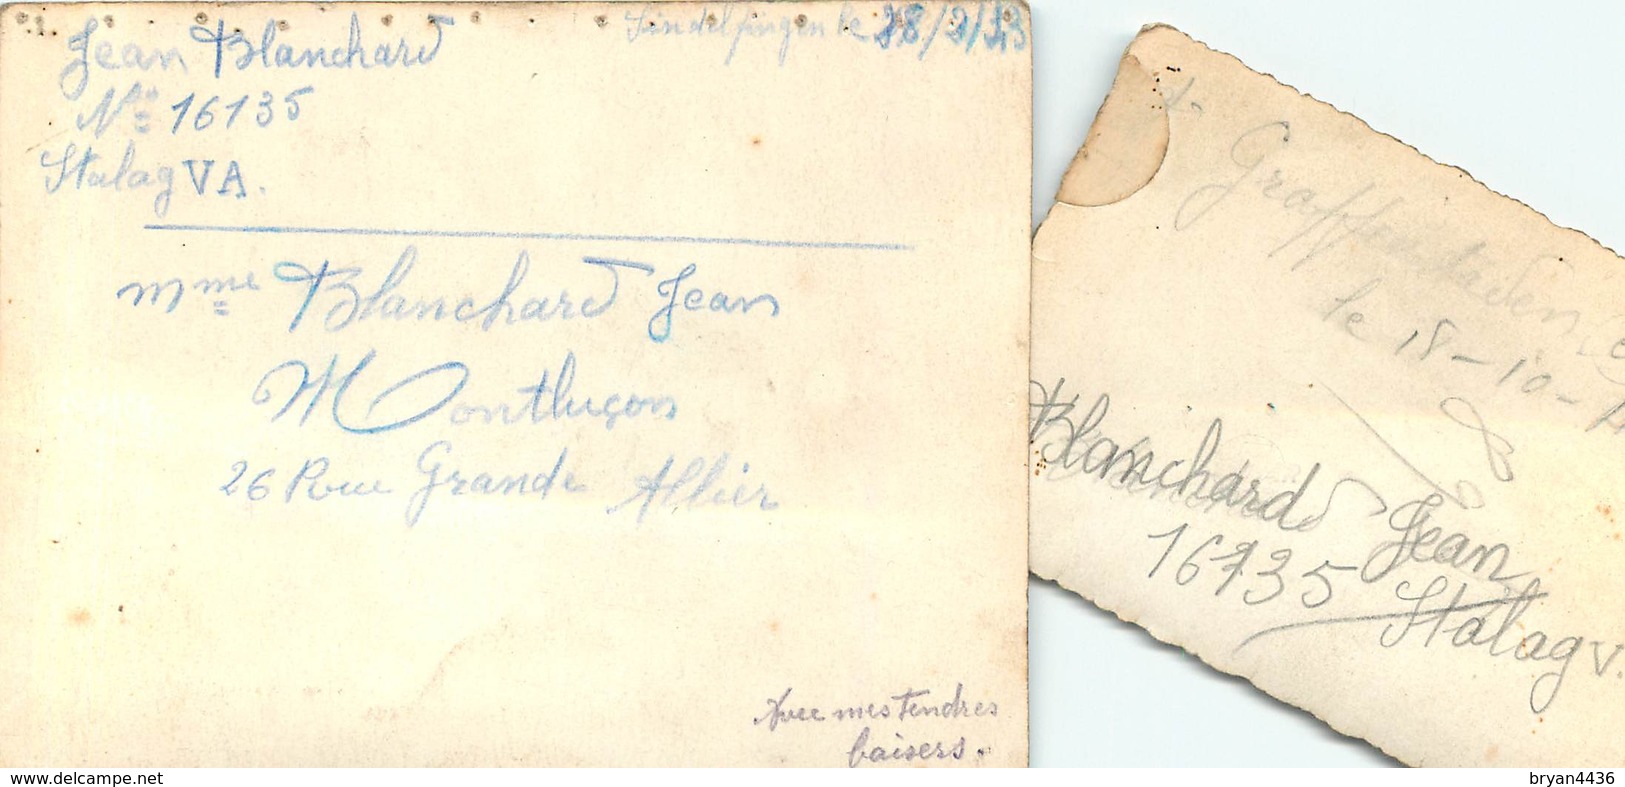 Sindelfingen le 28/2/43
Jean Blanchard
N° 16135
Stalag V A.
Mme Blanchard Jean
Montluçon
26 Rue Grande Allier
Avec mes tendres
baisers.
Graffenstaden
le 18-10-4
Blanchard Jean
16135 Stalag V.
delcampe.net
bryan4436